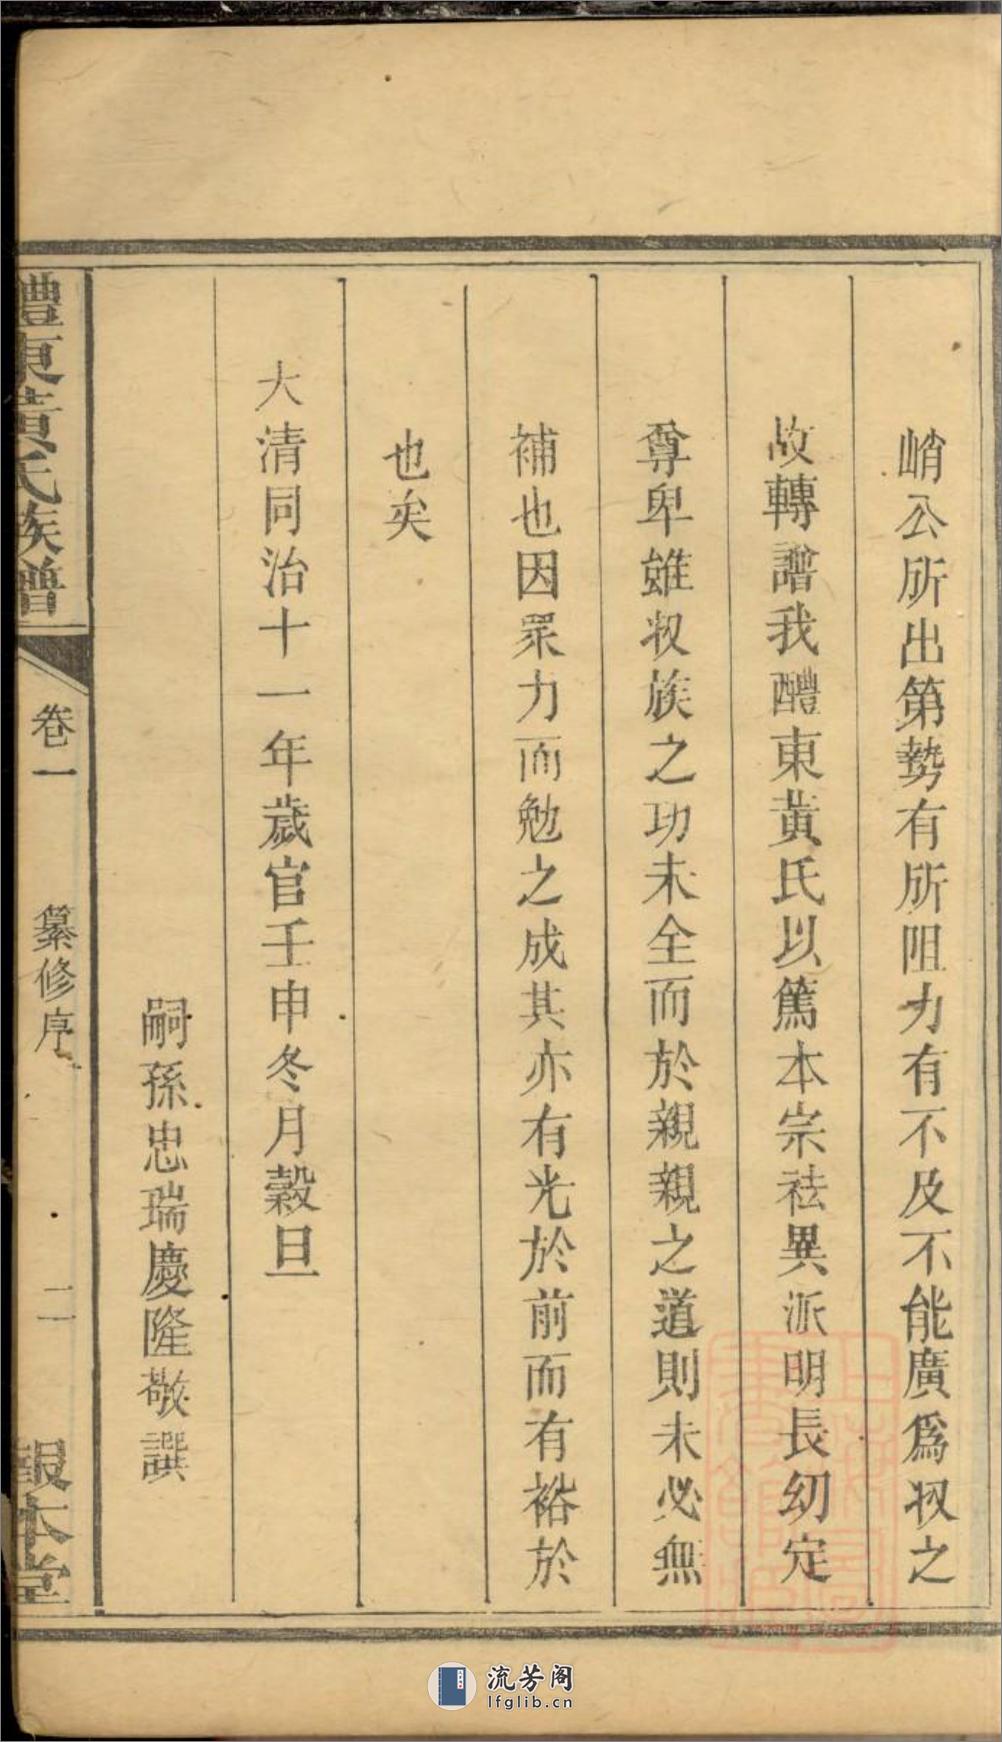 峭公所出第勢有所阻力有不及不能廣爲収之
故轉譜我醴東黃氏以篤本宗祛異派明長幼定
尊卑雖収族之功未全而於親親之道則未必無
補也因眾力而勉之成其亦有光於前而有裕於
也矣
大清同治十一年歲官壬申冬月穀旦
嗣孫忠瑞慶隆敬譔
醴東黃氏族譜
卷一
纂修序
二
報本堂
流芳阁
lfglib.cn